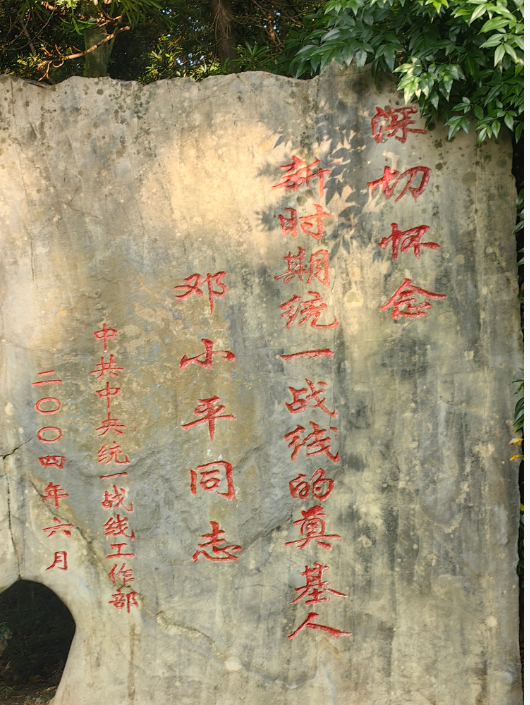 深切怀念
新时期统一战线的奠基人
邓小平同志
中共中央统一战线工作部
二〇〇四年六月